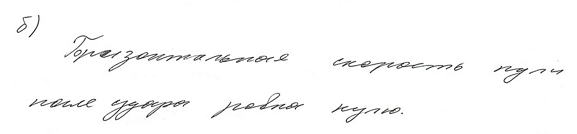 б)
Горизонтальная скорость пули
после удара равна нулю.